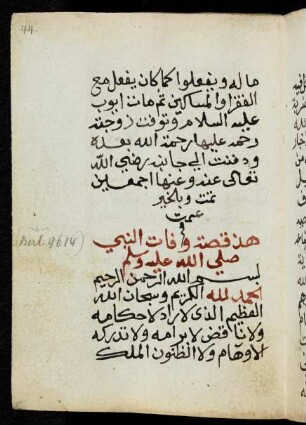 44.
ماله ويفعلوا كما كان يفعل مع
الفقرا والمساكين ثم مات ايوب
عليه السلام وتوفت زوجته
رحمة عليها رحمة الله بعده
ودفنت الي جانبه رضي الله
تعالى عنه وعنها اجمعين
تمت وبالخير
عمت
هذه قصة وفات النبي
صلي الله عليه وسلم
بسم الله الرحمن الرحيم
الحمد لله الكريم وسبحان الله
العظيم الذي لا راد لاحكامه
ولا ناقض لابرامه ولا تدركه
الاوهام ولا الظنون الملك
(Berl. 9614)